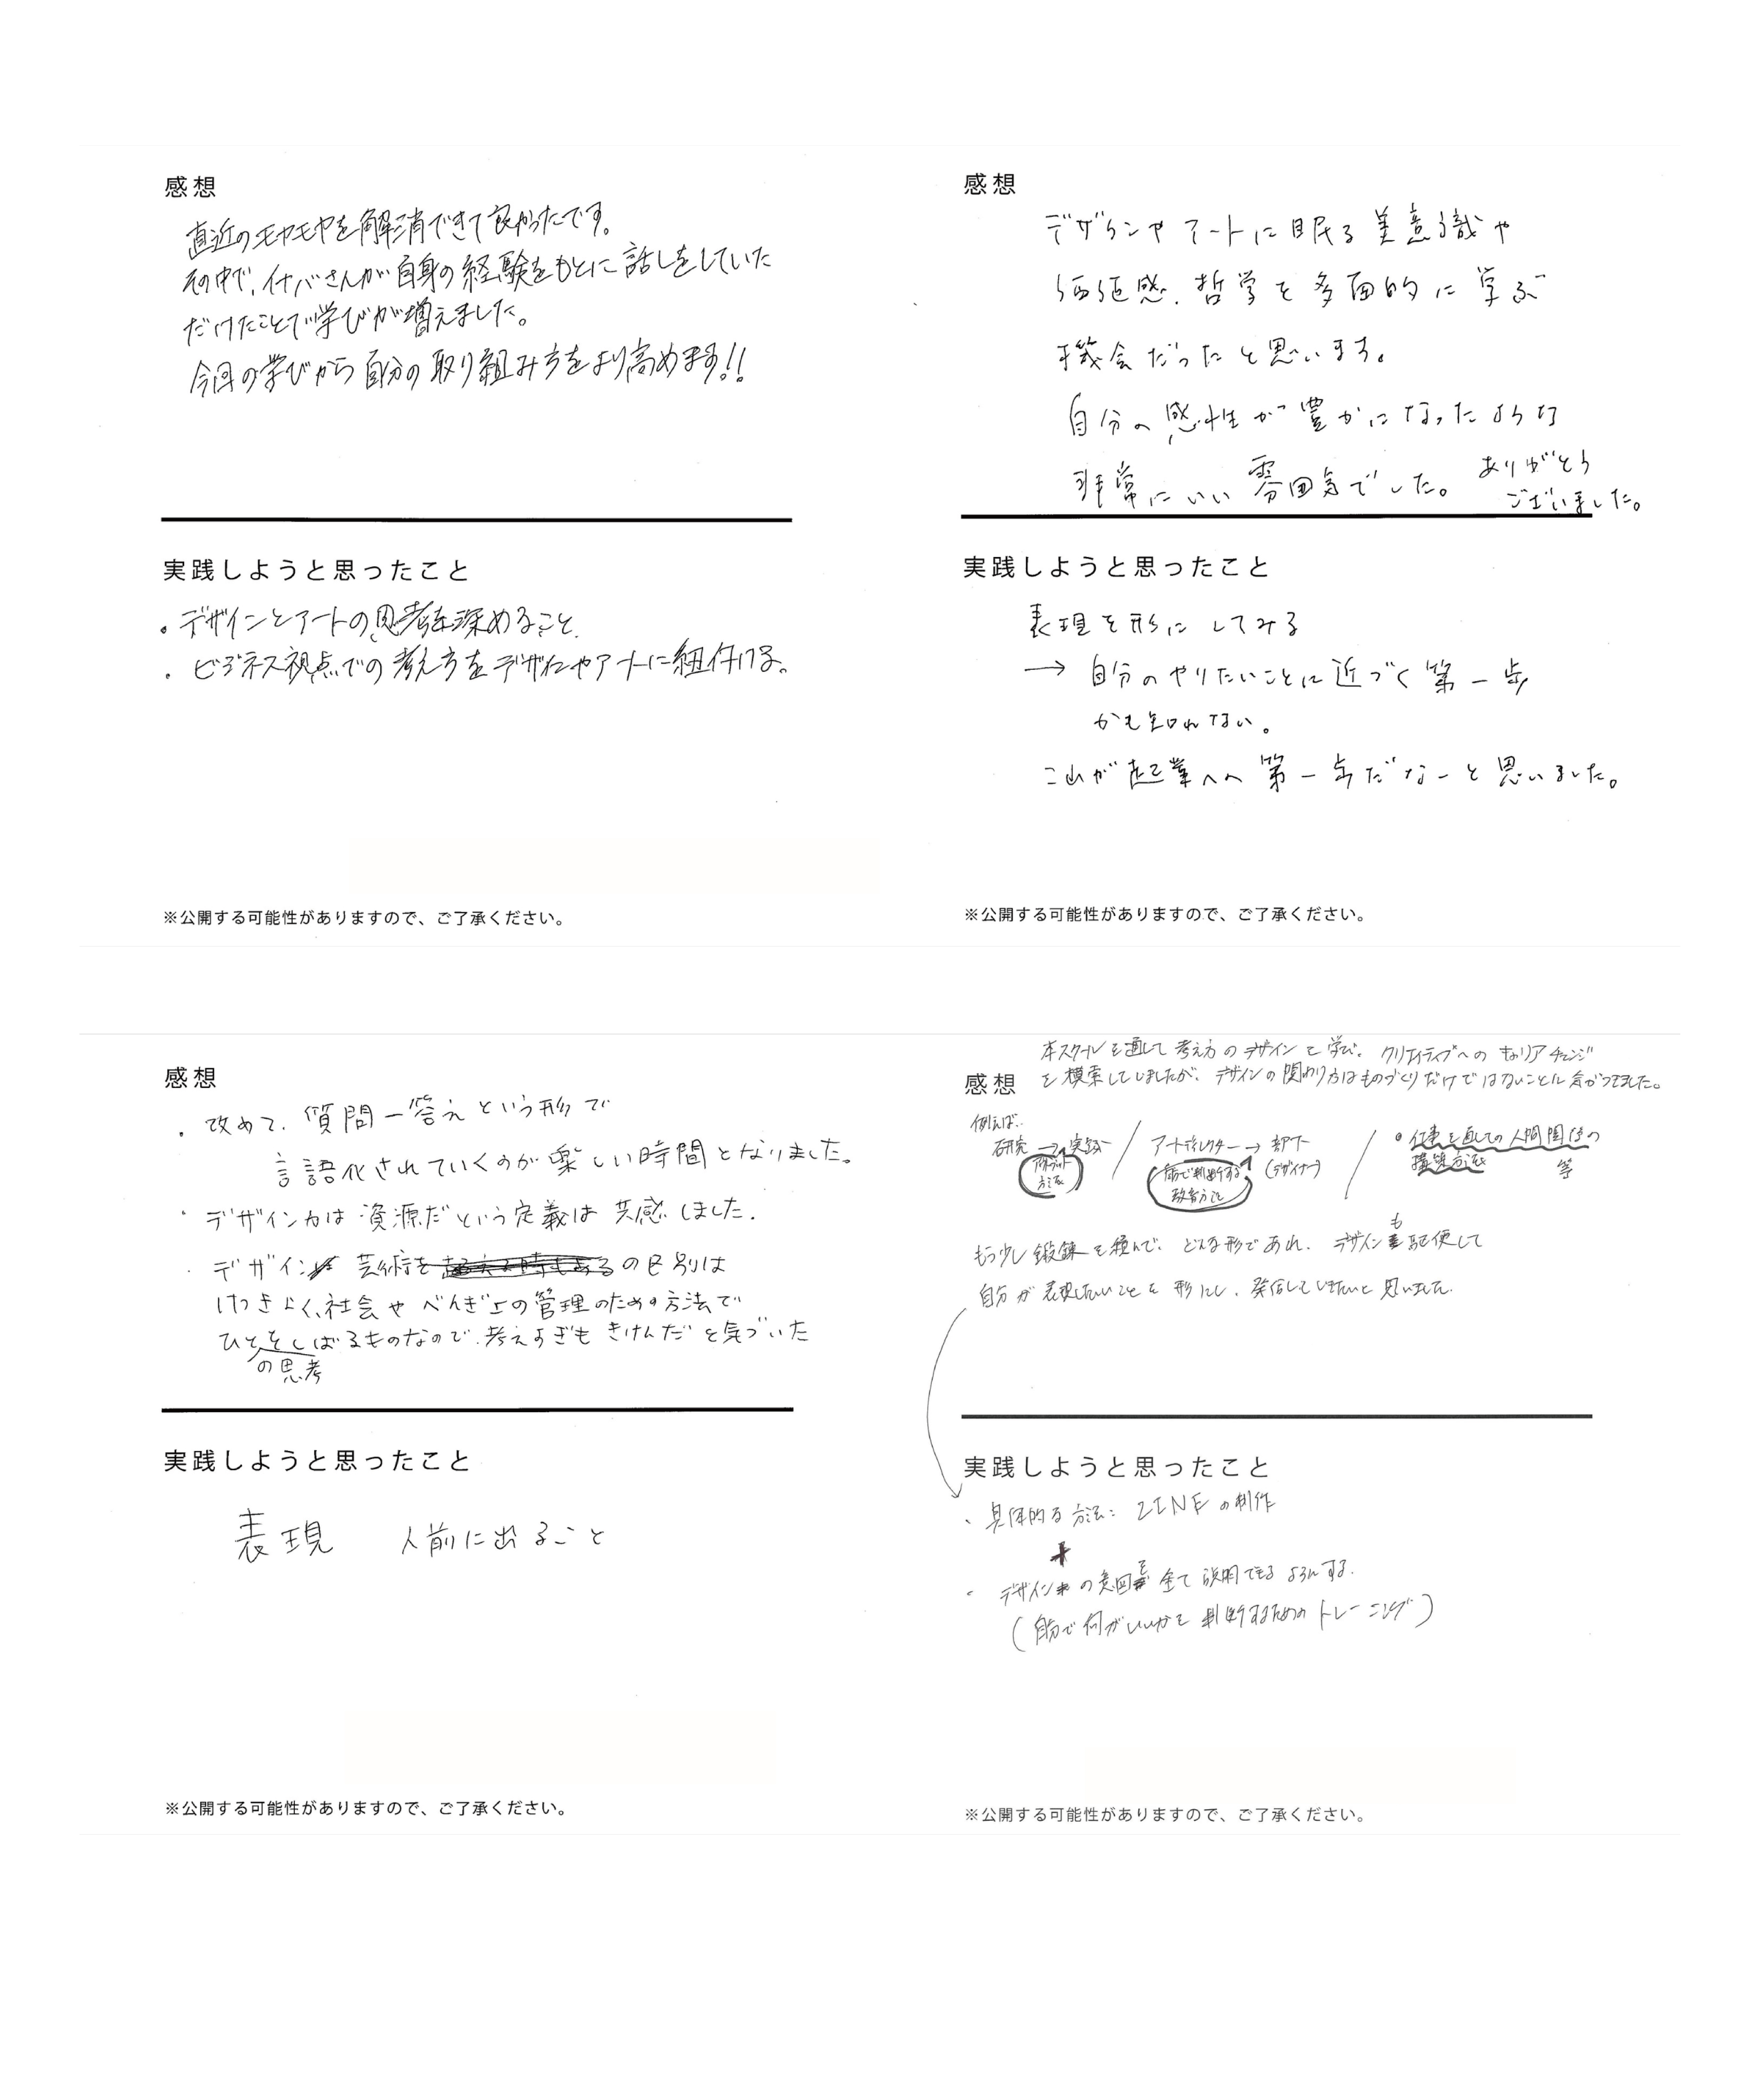 感想
直近のモヤモヤを解消できて良かったです。
その中で、イナバさんが自身の経験をもとに話しをしていた
だけたことで学びが増えました。
今回の学びから自分の取り組み方をより高めます!!
実践しようと思ったこと
・デザインとアートの思考を深めること、
・ビジネス視点での考え方をデザインやアートに紐付ける。
※公開する可能性がありますので、ご了承ください。
感想
デザインやアートに眠る美意識や
価値感、哲学を多面的に学ぶ
機会だったと思います。
自分の感性が豊かになったような
非常にいい雰囲気でした。ありがとう
ございました。
実践しようと思ったこと
表現を形にしてみる
→ 自分のやりたいことに近づく第一歩
かも知れない。
これが起業への第一歩だなーと思いました。
※公開する可能性がありますので、ご了承ください。
感想
・改めて、質問一答えという形で
言語化されていくのが楽しい時間となりました。
・デザイン力は資源だという定義は共感しました.
・デザイン 芸術を の区別は
けっきょく、社会や べんぎ上の管理のための方法で
ひとをしばるものなので、考えすぎもきけんだと気づいた
の思考
実践しようと思ったこと
表現 人前に出ること
※公開する可能性がありますので、ご了承ください。
本スクールを通して考え方のデザインを学び、クリエイティブへのキャリアチェンジ
を模索していましたが、デザインの関わり方はものづくりだけではないことに気がつきました。
感想
例えば..
研究 → 実
方法
アートディレクター → 部下
(デザイナー)
で判断する
教育方法
仕事を通しての人間関係の
構築方法 等
もう少し鍛錬を積んで、どんな形であれ、デザインも駆使して
自分が表現したいことを形にし、発信していきたいと思いました.
実践しようと思ったこと
・具体的な方法: ZINEの制作
+
・デザインの意図を全て説明できるようにする.
(自分で何がいいかを判断するためのトレーニング)
※公開する可能性がありますので、ご了承ください。